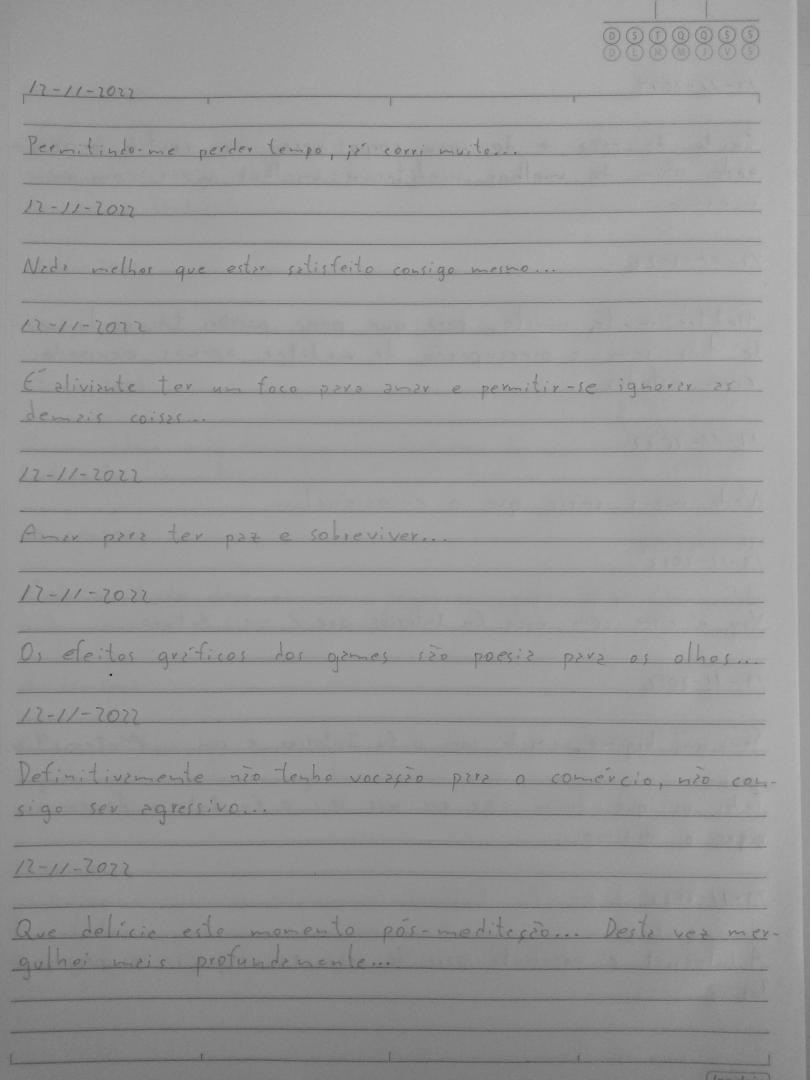 D S T Q Q S S
D L M M J V S
12-11-2022
Permitindo-me perder tempo, já corri muito...
12-11-2022
Nada melhor que estar satisfeito consigo mesmo...
12-11-2022
É aliviante ter um foco para amar e permitir-se ignorar as
demais coisas...
12-11-2022
Amar para ter paz e sobreviver...
12-11-2022
Os efeitos gráficos dos games são poesia para os olhos...
12-11-2022
Definitivamente não tenho vocação para o comércio, não con-
sigo ser agressivo...
12-11-2022
Que delícia este momento pós-meditação... Desta vez mer-
gulhei mais profundamente...